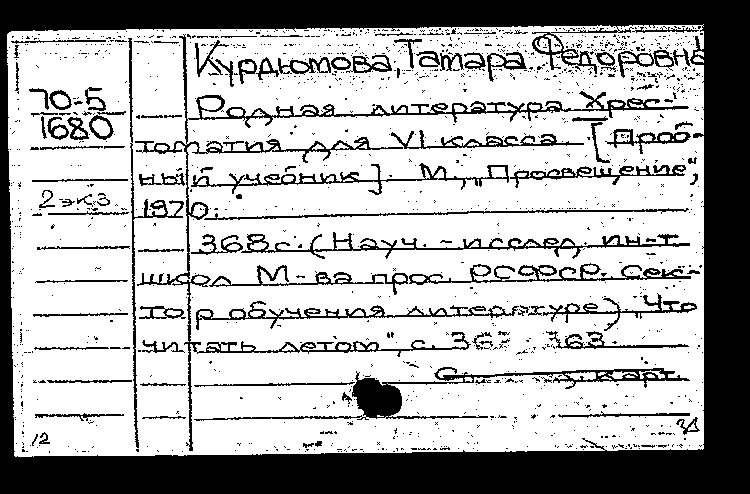 Курдюмова, Тамара Федоровна
70-5
1680
Родная литература. Хрес-
томатия для VI класса. [Проб-
ный учебник]. М., „Просвещение“,
2 экз
1970.
368 с. (Науч.-исслед. ин-т
школ М-ва прос. РСФСР. Сек-
тор обучения литературе). „Что
читать летом“, с. 363
карт.
12